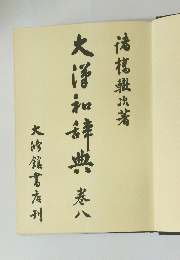 諸橋轍次著
大漢和辞典 巻八
大修館書店刊